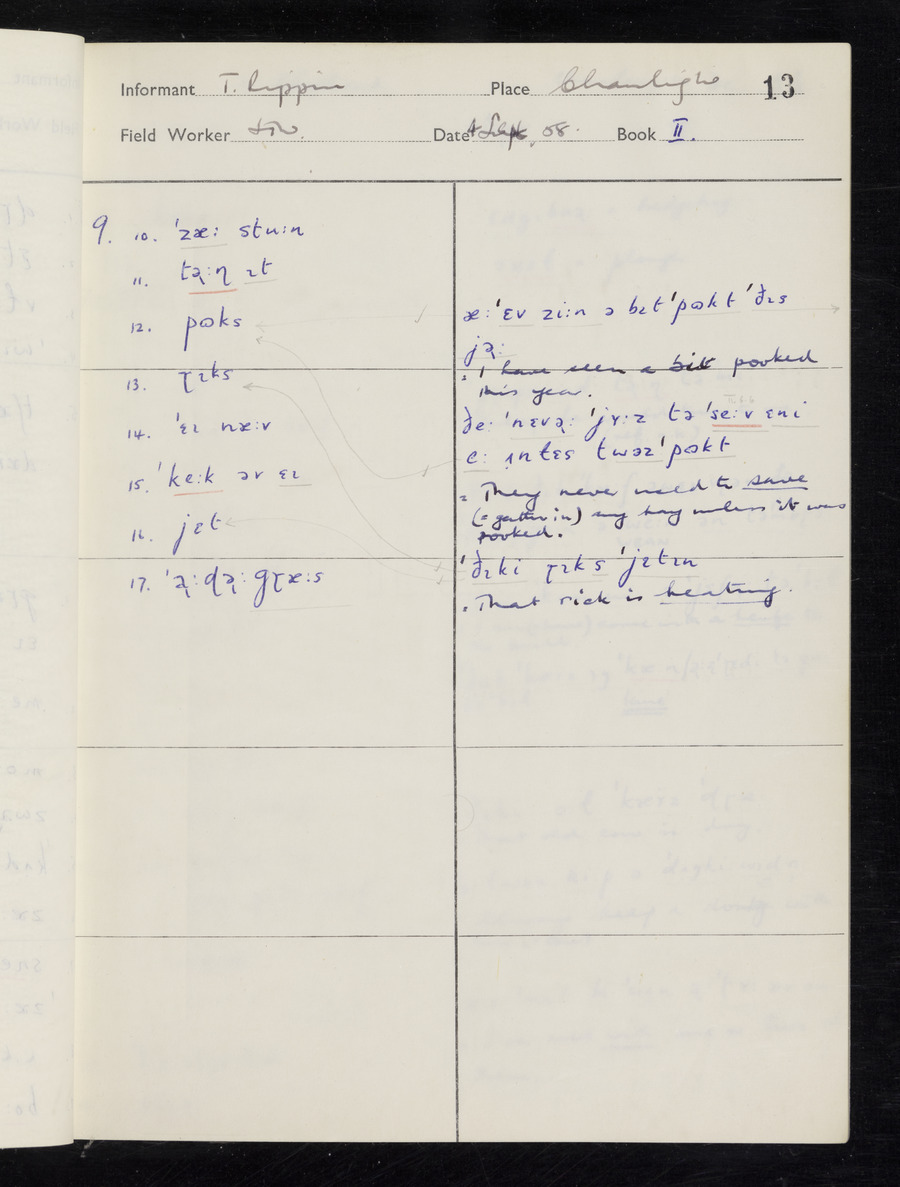 Informant T. Rippin Place 13
Field Worker Date 4 Sept. 58. Book II.
9. 10. ˈzæ: stu:n
11. tə̢:ɳ ɪt
12. pɒks
13. ɽɪks
14. ˈɛɪ næ:v
15. ˈke:k əv ɛɪ
16. jɛt
17. ˈə̢:ɖə̢: gɽæ:s
æ: ˈɛv zi:n ə bɪt ˈpɒkt ˈðɪs
jə̢:
= I have seen a bit pooked
this year.
ðe: ˈnɛvə̢: ˈjɤ:z tə ˈse:v ɛni
e: ɪntɛs twəz ˈpɒkt
= They never used to save
(= gather in) any hay unless it was
pooked.
ˈðɪki ɽɪks ˈjɛtɪn
= That rick is heating.